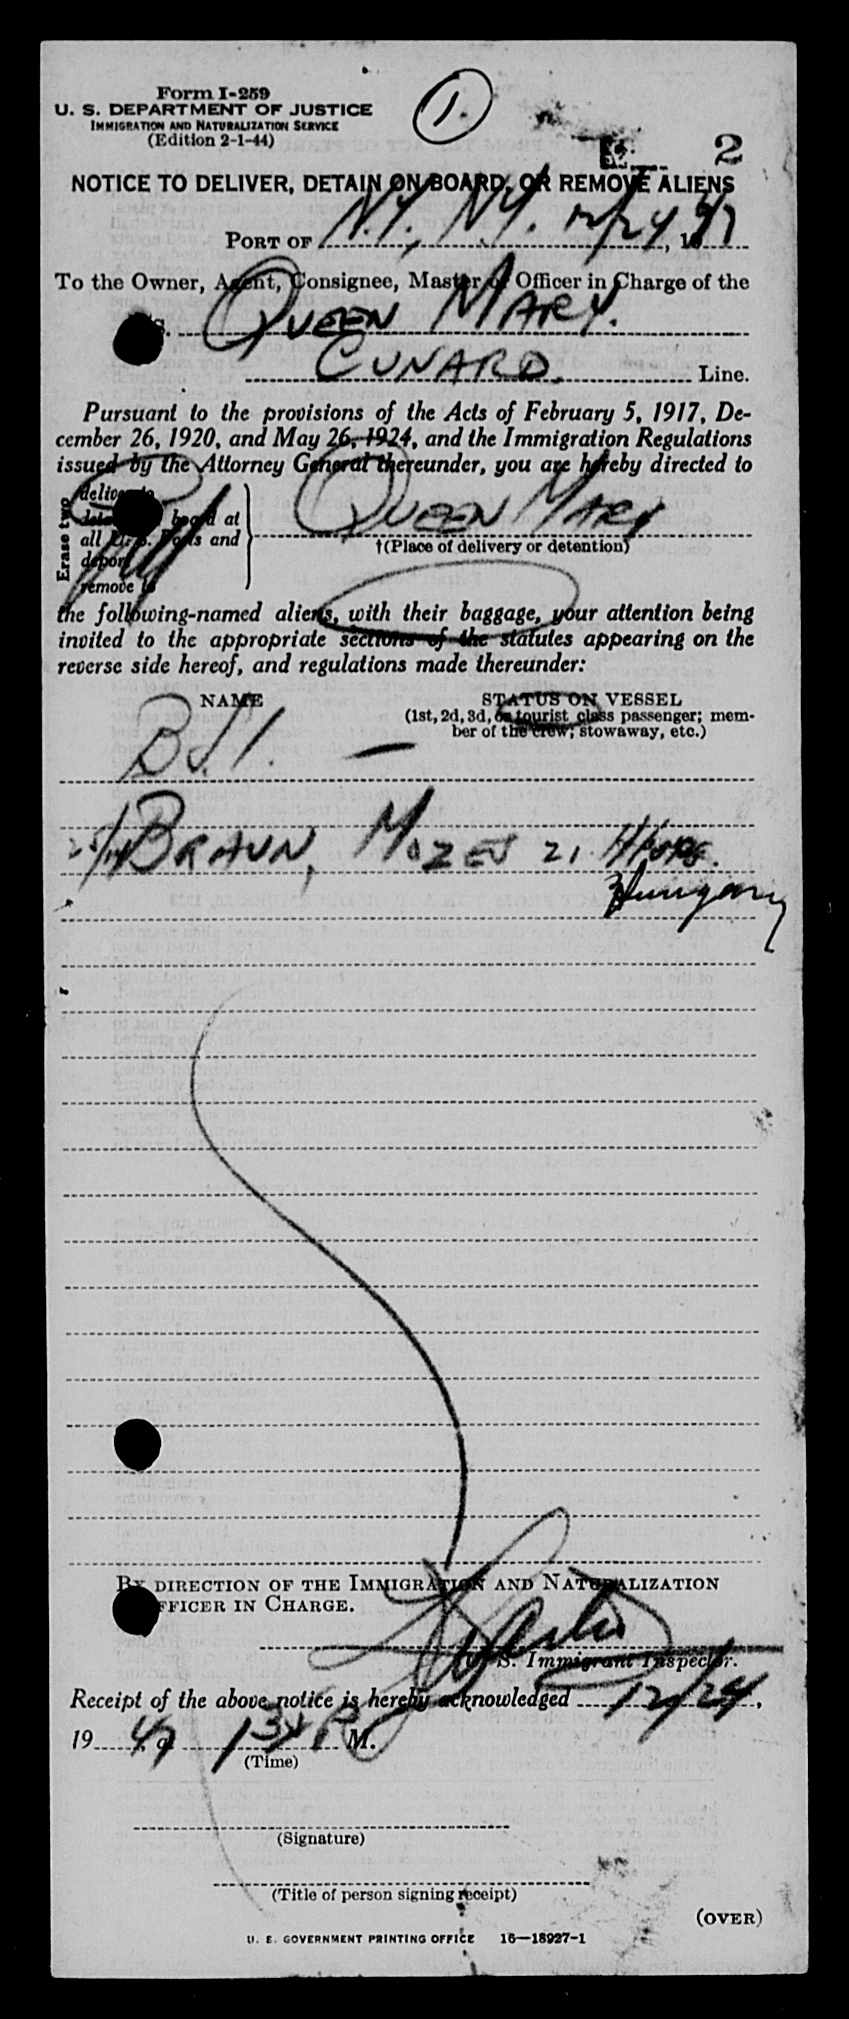 Form I-259
U. S. DEPARTMENT OF JUSTICE
IMMIGRATION AND NATURALIZATION SERVICE
(Edition 2-1-44)
1.
2
NOTICE TO DELIVER, DETAIN ON BOARD, OR REMOVE ALIENS
PORT OF N.Y., N.Y. 12/24, 1947
To the Owner, Agent, Consignee, Master or Officer in Charge of the
S. QUEEN MARY.
CUNARD. Line.
Pursuant to the provisions of the Acts of February 5, 1917, De-
cember 26, 1920, and May 26, 1924, and the Immigration Regulations
issued by the Attorney General thereunder, you are hereby directed to
Erase two
deliver to
detain board at
all U. S. Ports and
deport
remove to
QUEEN MARY
†(Place of delivery or detention)
the following-named aliens, with their baggage, your attention being
invited to the appropriate sections of the statutes appearing on the
reverse side hereof, and regulations made thereunder:
NAME
STATUS ON VESSEL
(1st, 2d, 3d, or tourist class passenger; mem-
ber of the crew; stowaway, etc.)
B.S.I. —
BRAUN, MOZES 21
Hungary
BY DIRECTION OF THE IMMIGRATION AND NATURALIZATION
OFFICER IN CHARGE.
U. S. Immigrant Inspector.
Receipt of the above notice is hereby acknowledged 12/24,
1947, at 1 P M.
(Time)
(Signature)
(Title of person signing receipt)
(OVER)
U. S. GOVERNMENT PRINTING OFFICE 16—18927-1